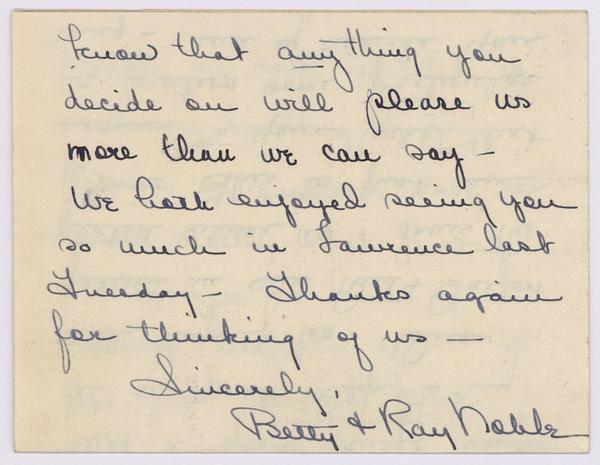 know that anything you
decide on will please us
more than we can say –
We both enjoyed seeing you
so much in Lawrence last
Tuesday – Thanks again
for thinking of us —
Sincerely,
Betty & Ray Noble